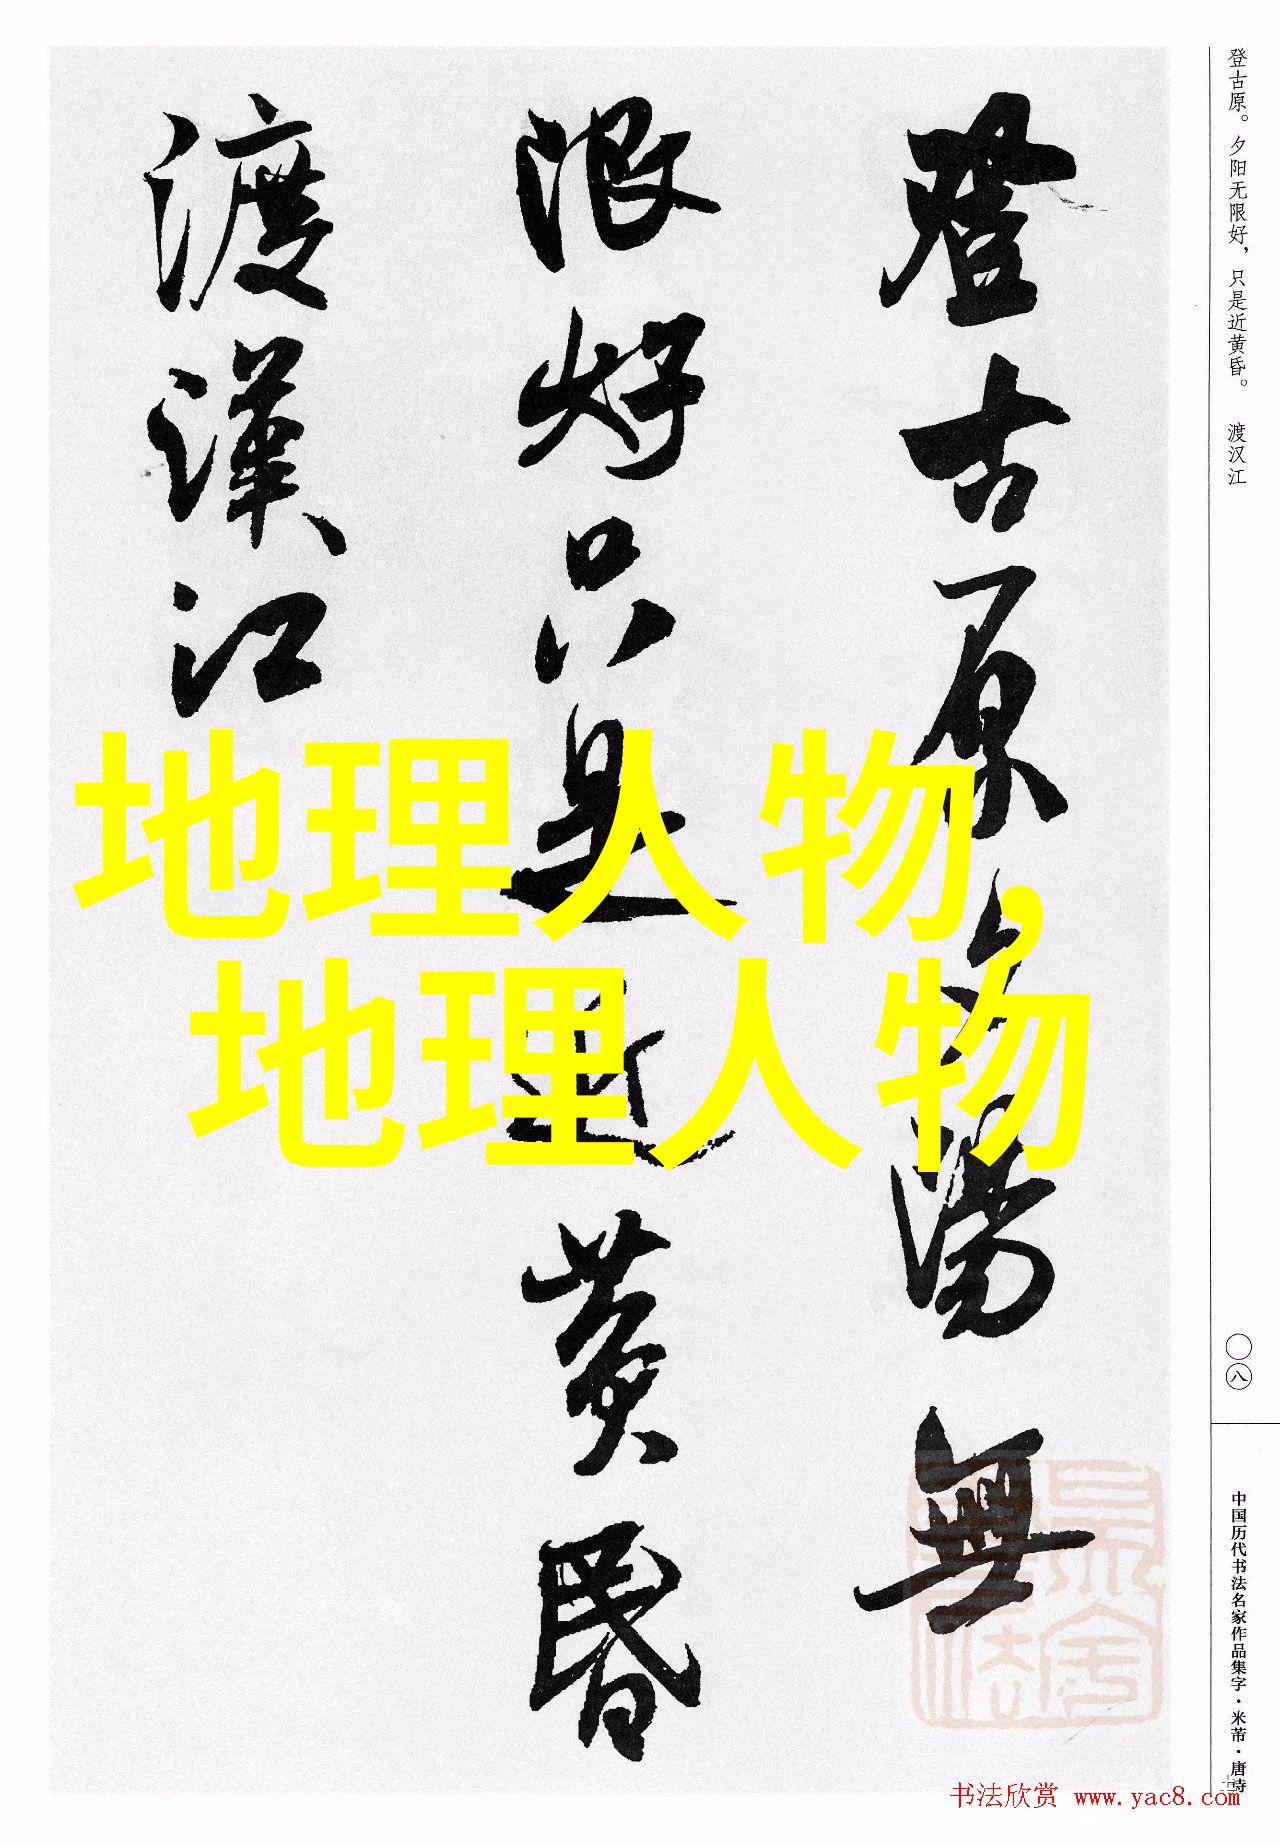 登古原夕陽無
限好只是近黄昏
渡漢江
地理人物,
地理人物
登古原。夕阳无限好，只是近黄昏。 渡汉江
〇八
中国历代书法名家作品集字·米芾·唐诗
书法欣赏 www.yac8.com